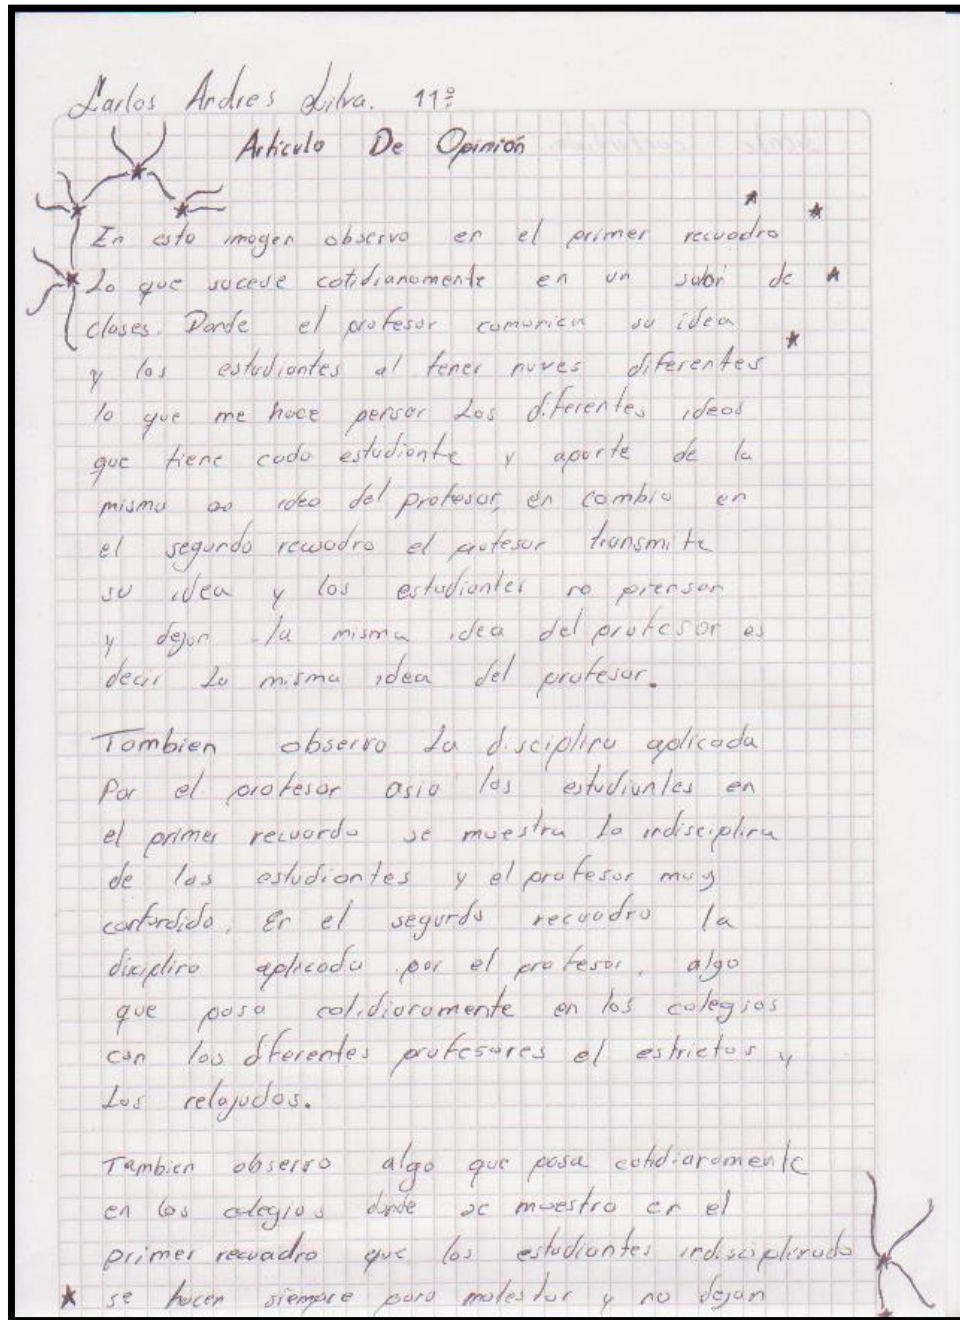 Carlos Andres Silva. 11º
Articulo De Opinión
En esta imagen observo en el primer recuadro
Lo que sucede cotidianamente en un salon de
clases. Donde el profesor comunica su idea
y los estudiantes al tener nuves diferentes
lo que me hace pensar Los diferentes ideas
que tiene cada estudiante y aparte de la
misma idea del profesor, en cambio en
el segundo recuadro el profesor transmite
su idea y los estudiantes no piensan
y dejan la misma idea del profesor es
decir La misma idea del profesor.
Tambien observo La disciplina aplicada
Por el profesor asia los estudiantes en
el primer recuardo se muestra la indisciplina
de los estudiantes y el profesor muy
confundido. En el segundo recuadro la
diciplina aplicada por el profesor. algo
que pasa cotidianamente en los colegios
con los diferentes profesores el estrictos y
Los relajados.
Tambien observo algo que pasa cotidianamente
en los colegios donde se muestra en el
primer recuadro que los estudiantes indisciplinado
se hacen siempre para molestar y no dejan